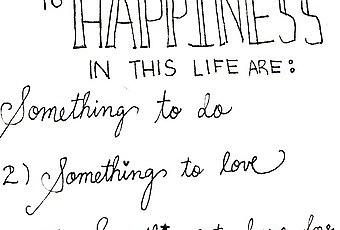 TO
HAPPINESS
IN THIS LIFE ARE:
Something to do
2) Something to love